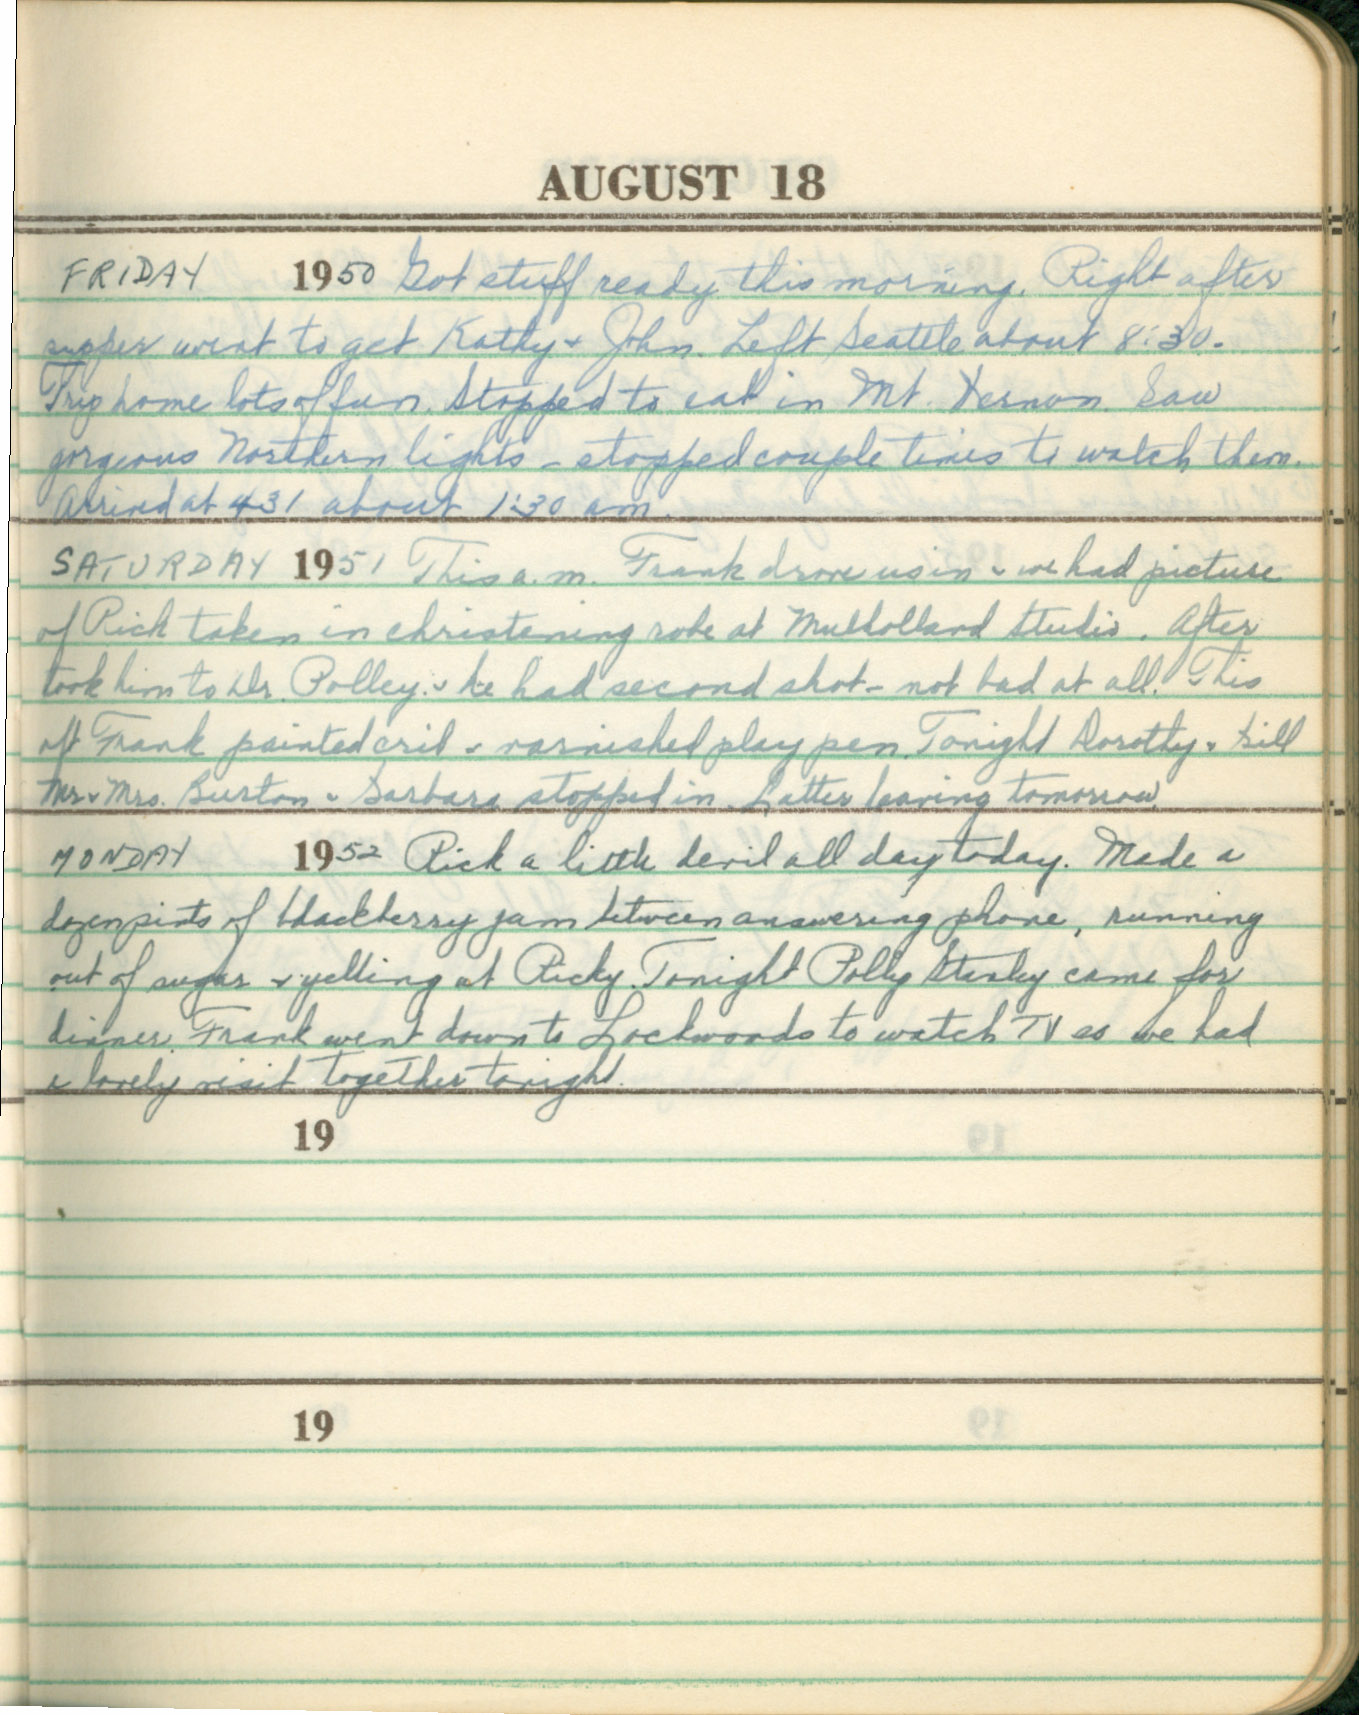 AUGUST 18
FRIDAY 1950 Got stuff ready this morning. Right after
supper went to get Kathy & John. Left Seattle about 8:30.
Trip home lots of fun. Stopped to eat in Mt. Vernon. Saw
gorgeous Northern lights - stopped couple times to watch them.
Arrived at 431 about 1:30 am.
SATURDAY 1951 This a.m. Frank drove us in & we had picture
of Rick taken in christening robe at Mulholland Studio. After
took him to Dr. Polley & he had second shot - not bad at all. This
aft Frank painted crib & varnished play pen. Tonight Dorothy & Bill
Mr & Mrs. Burton & Barbara stopped in. Latter leaving tomorrow
MONDAY 1952 Rick a little devil all day today. Made a
dozen pints of blackberry jam between answering phone, running
out of sugar & yelling at Ricky. Tonight Polly Stanley came for
dinner. Frank went down to Lockwoods to watch TV so we had
a lovely visit together tonight.
19
19